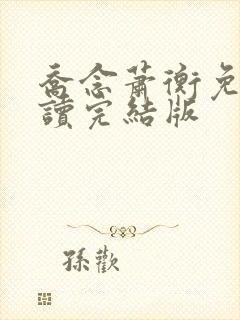 喬念蕭衡免
讀完結版
孫歡